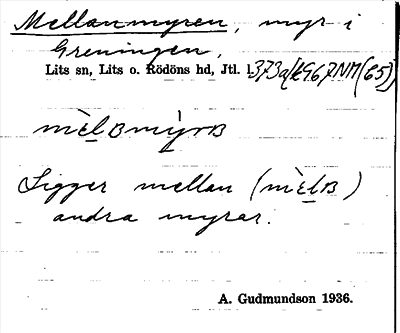 Mellanmyren, myr i
Greningen,
Lits sn, Lits o. Rödöns hd, Jtl. l.
mèlBmỳrB
Ligger mellan (mèlB)
andra myrar.
A. Gudmundson 1936.